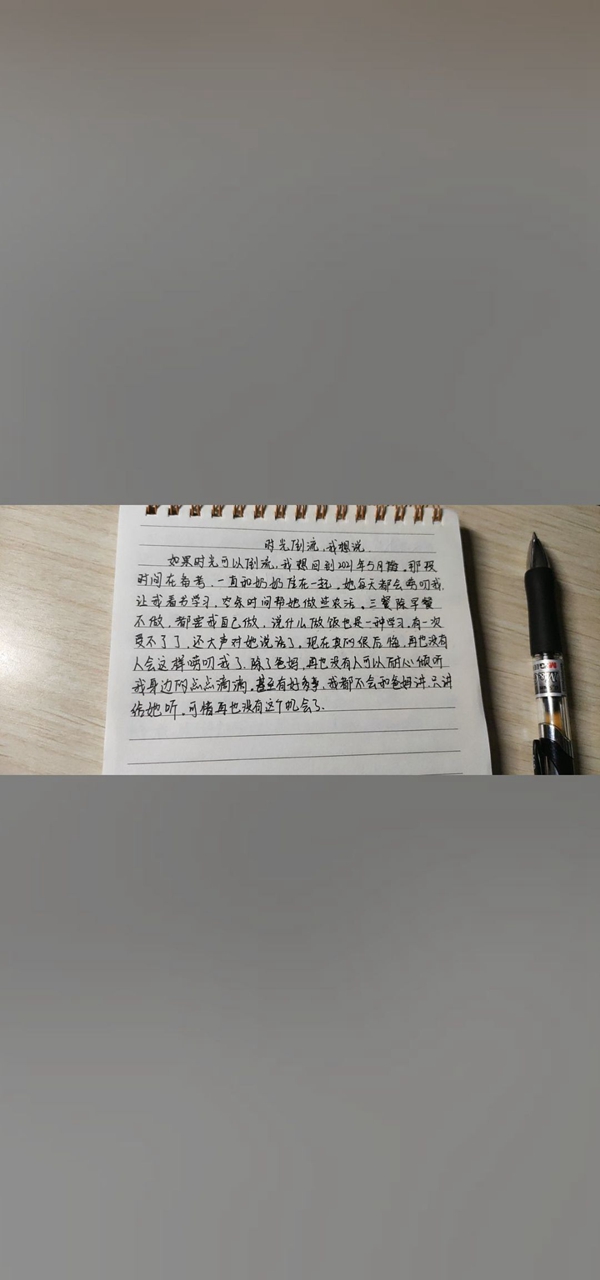 时光倒流，我想说
如果时光可以倒流，我想回到2021年5月前，那段
时间在备考，一直和奶奶住在一起，她每天都会唠叨我，
让我看书学习，空余时间帮她做些农活，三餐除早餐
不做，都要我自己做，说什么做饭也是一种学习，有一次
受不了了，还大声对她说话了。现在真的很后悔，再也没有
人会这样唠叨我了，除了爸妈，再也没有人可以耐心倾听
我身边的点点滴滴，甚至有好多事，我都不会和爸妈讲，只讲
给她听，可惜再也没有这个机会了。
M&G